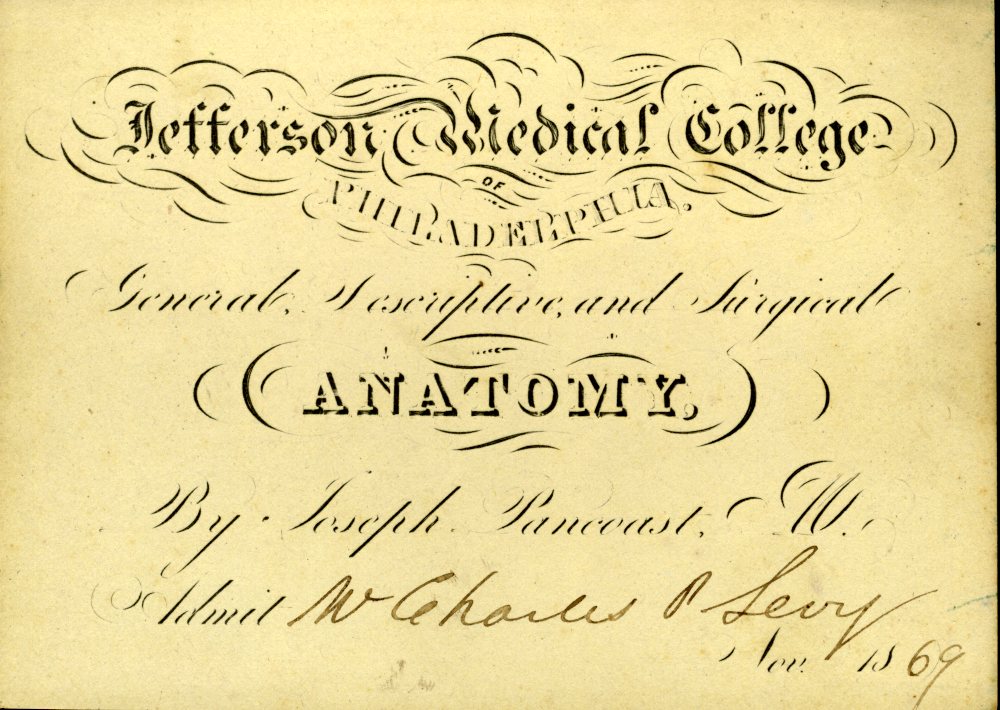 Jefferson Medical College
OF
PHILADELPHIA.
General, Descriptive, and Surgical
ANATOMY,
By Joseph Pancoast, M.
Admit Mr Charles P Levy
Nov. 1869